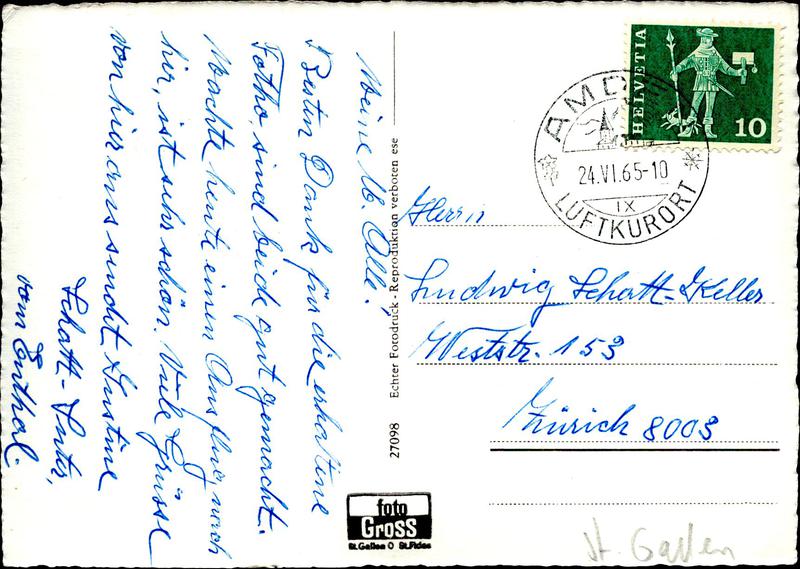 Meine lb. Alle!
Besten Dank für die erhaltene
Fotho, sind beide gut gemacht.
Machte heute einen Ausflug, nach
hir, ist sehr schön. Viele Grüsse
von hier aus sendet
Schatt-
vom
Echter Fotodruck - Reproduktion verboten ese
27098
foto
Gross
St.Gallen O St.Fiden
HELVETIA
10
AMD
24.VI.65-10
IX
LUFTKURORT
Herrn
Ludwig Schatt-Keller
Weststr. 153
Zürich 8003
St. Gallen